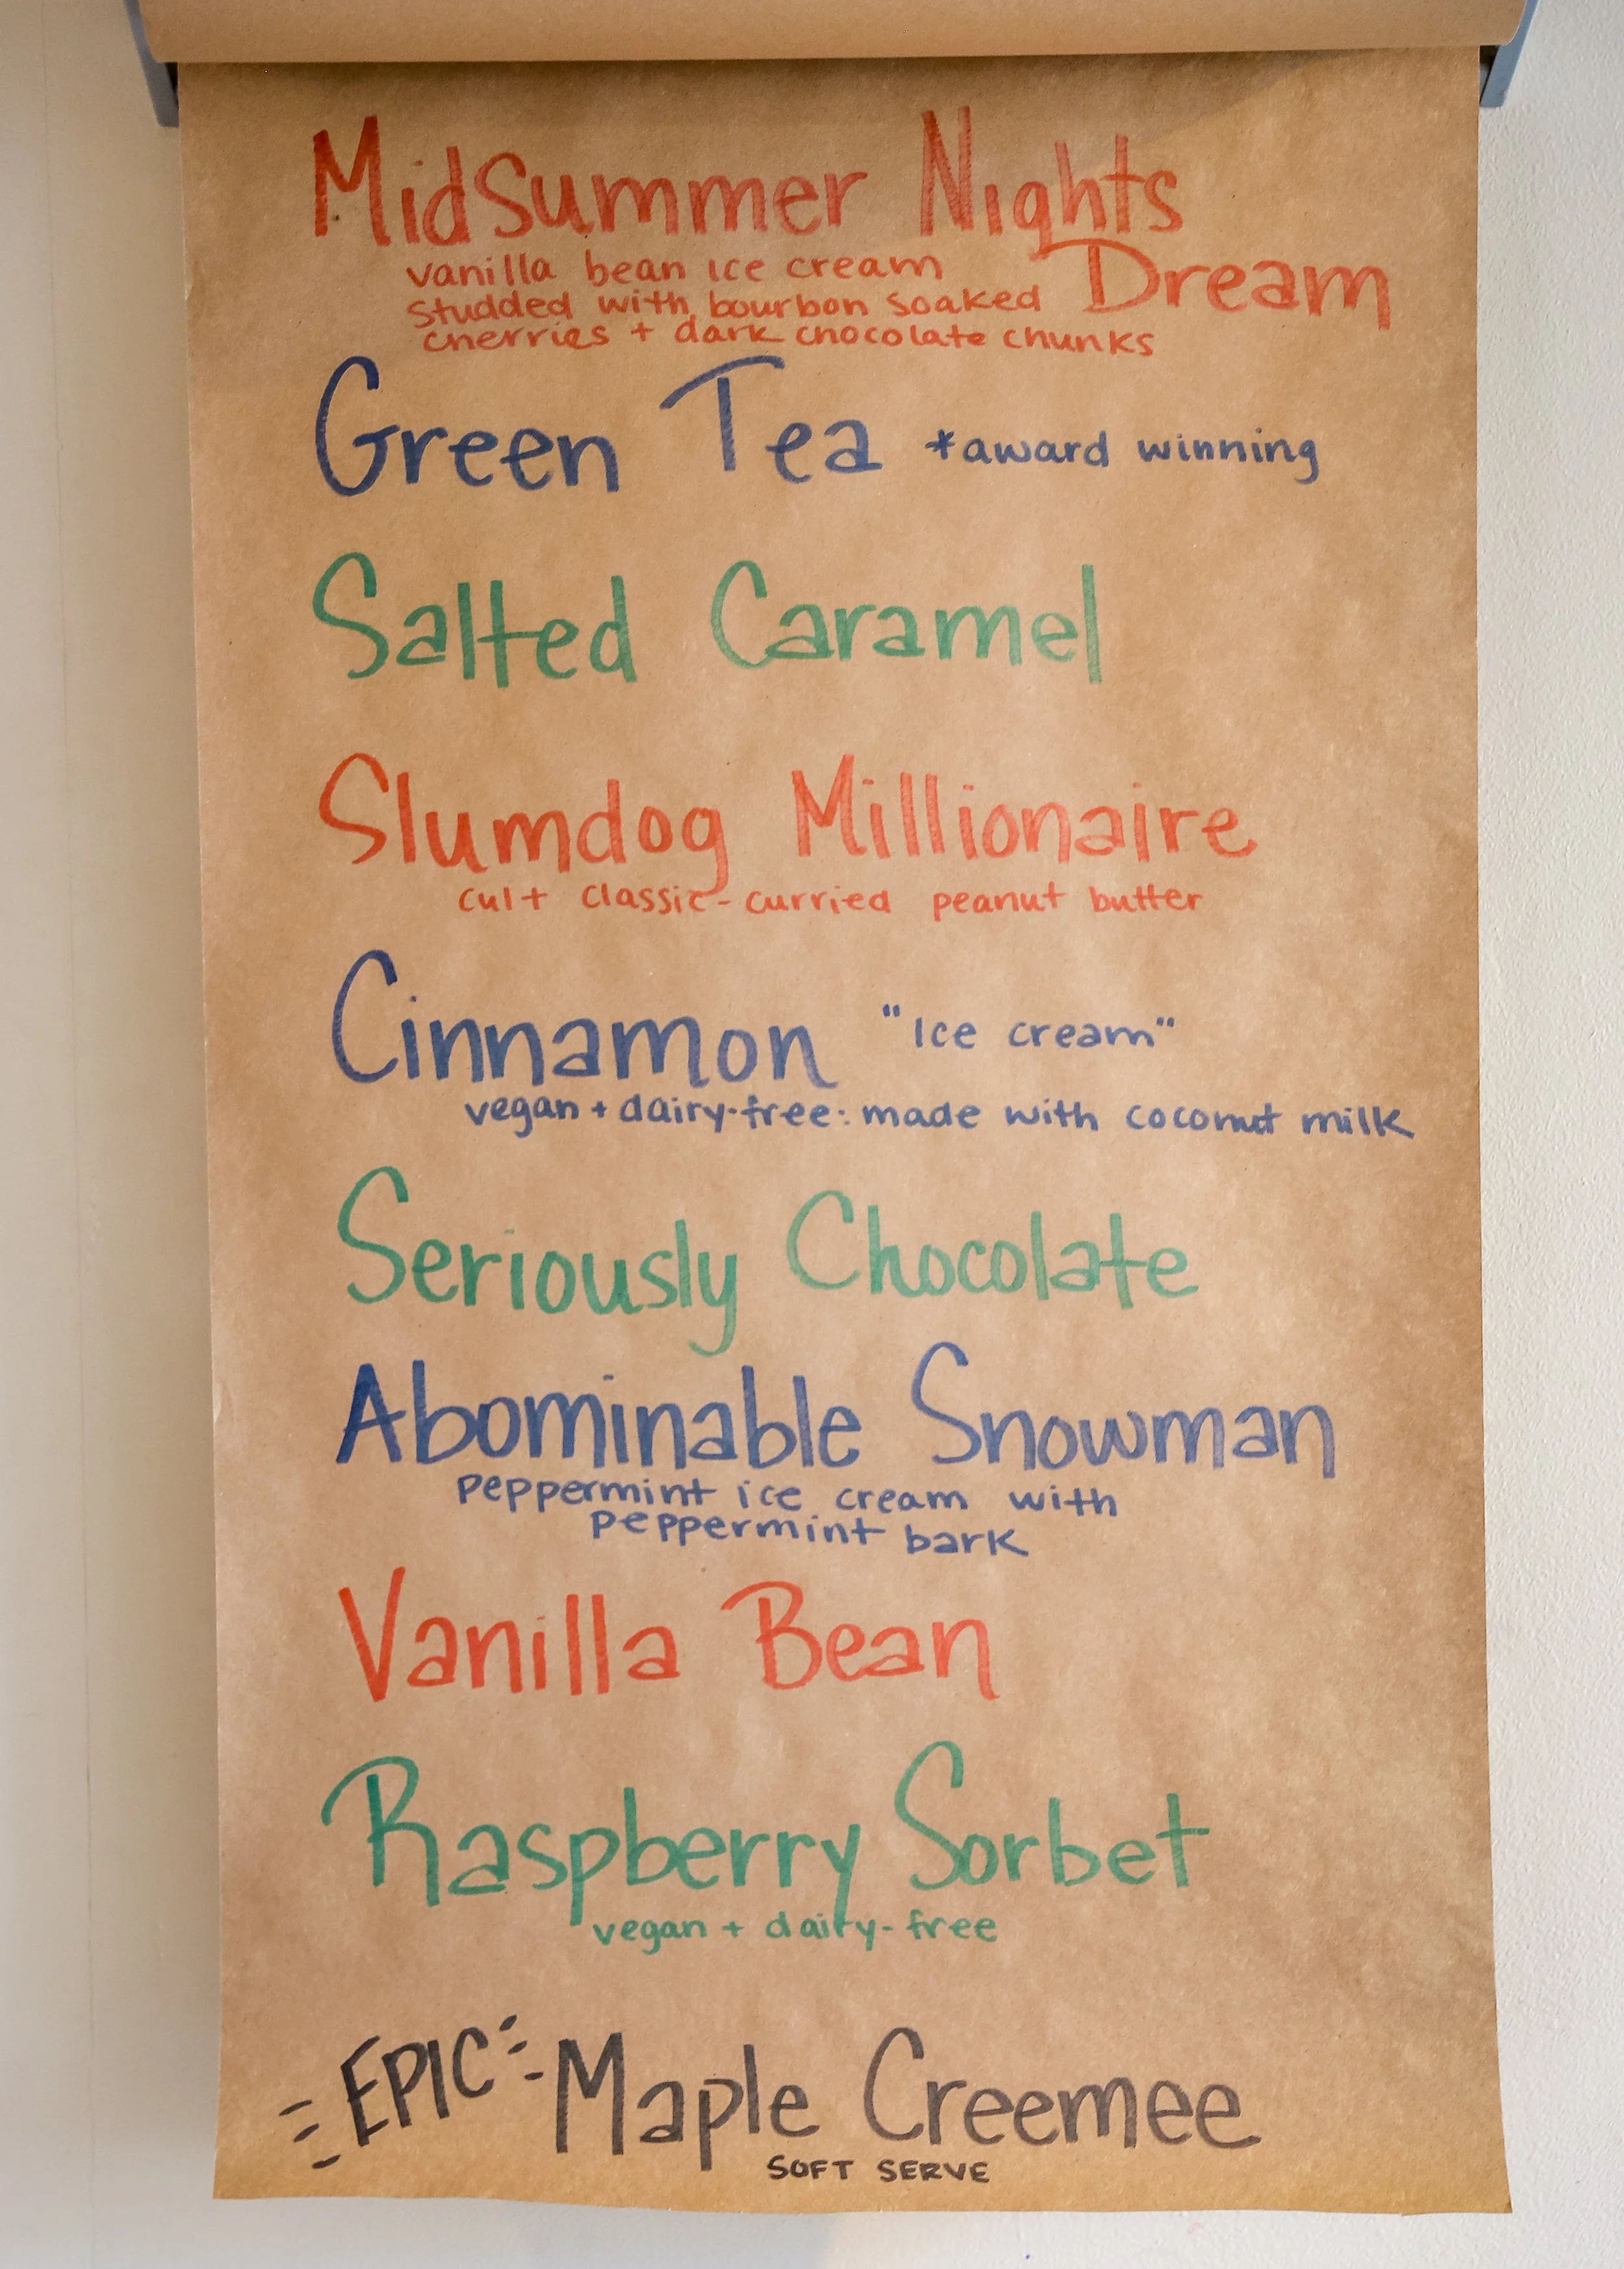 Midsummer Nights
Dream
vanilla bean ice cream
studded with bourbon soaked
cherries + dark chocolate chunks
Green Tea *award winning
Salted Caramel
Slumdog Millionaire
cult classic - curried peanut butter
Cinnamon "Ice cream"
vegan + dairy-free: made with coconut milk
Seriously Chocolate
Abominable Snowman
peppermint ice cream with
peppermint bark
Vanilla Bean
Raspberry Sorbet
vegan + dairy-free
EPIC Maple Creemee
SOFT SERVE